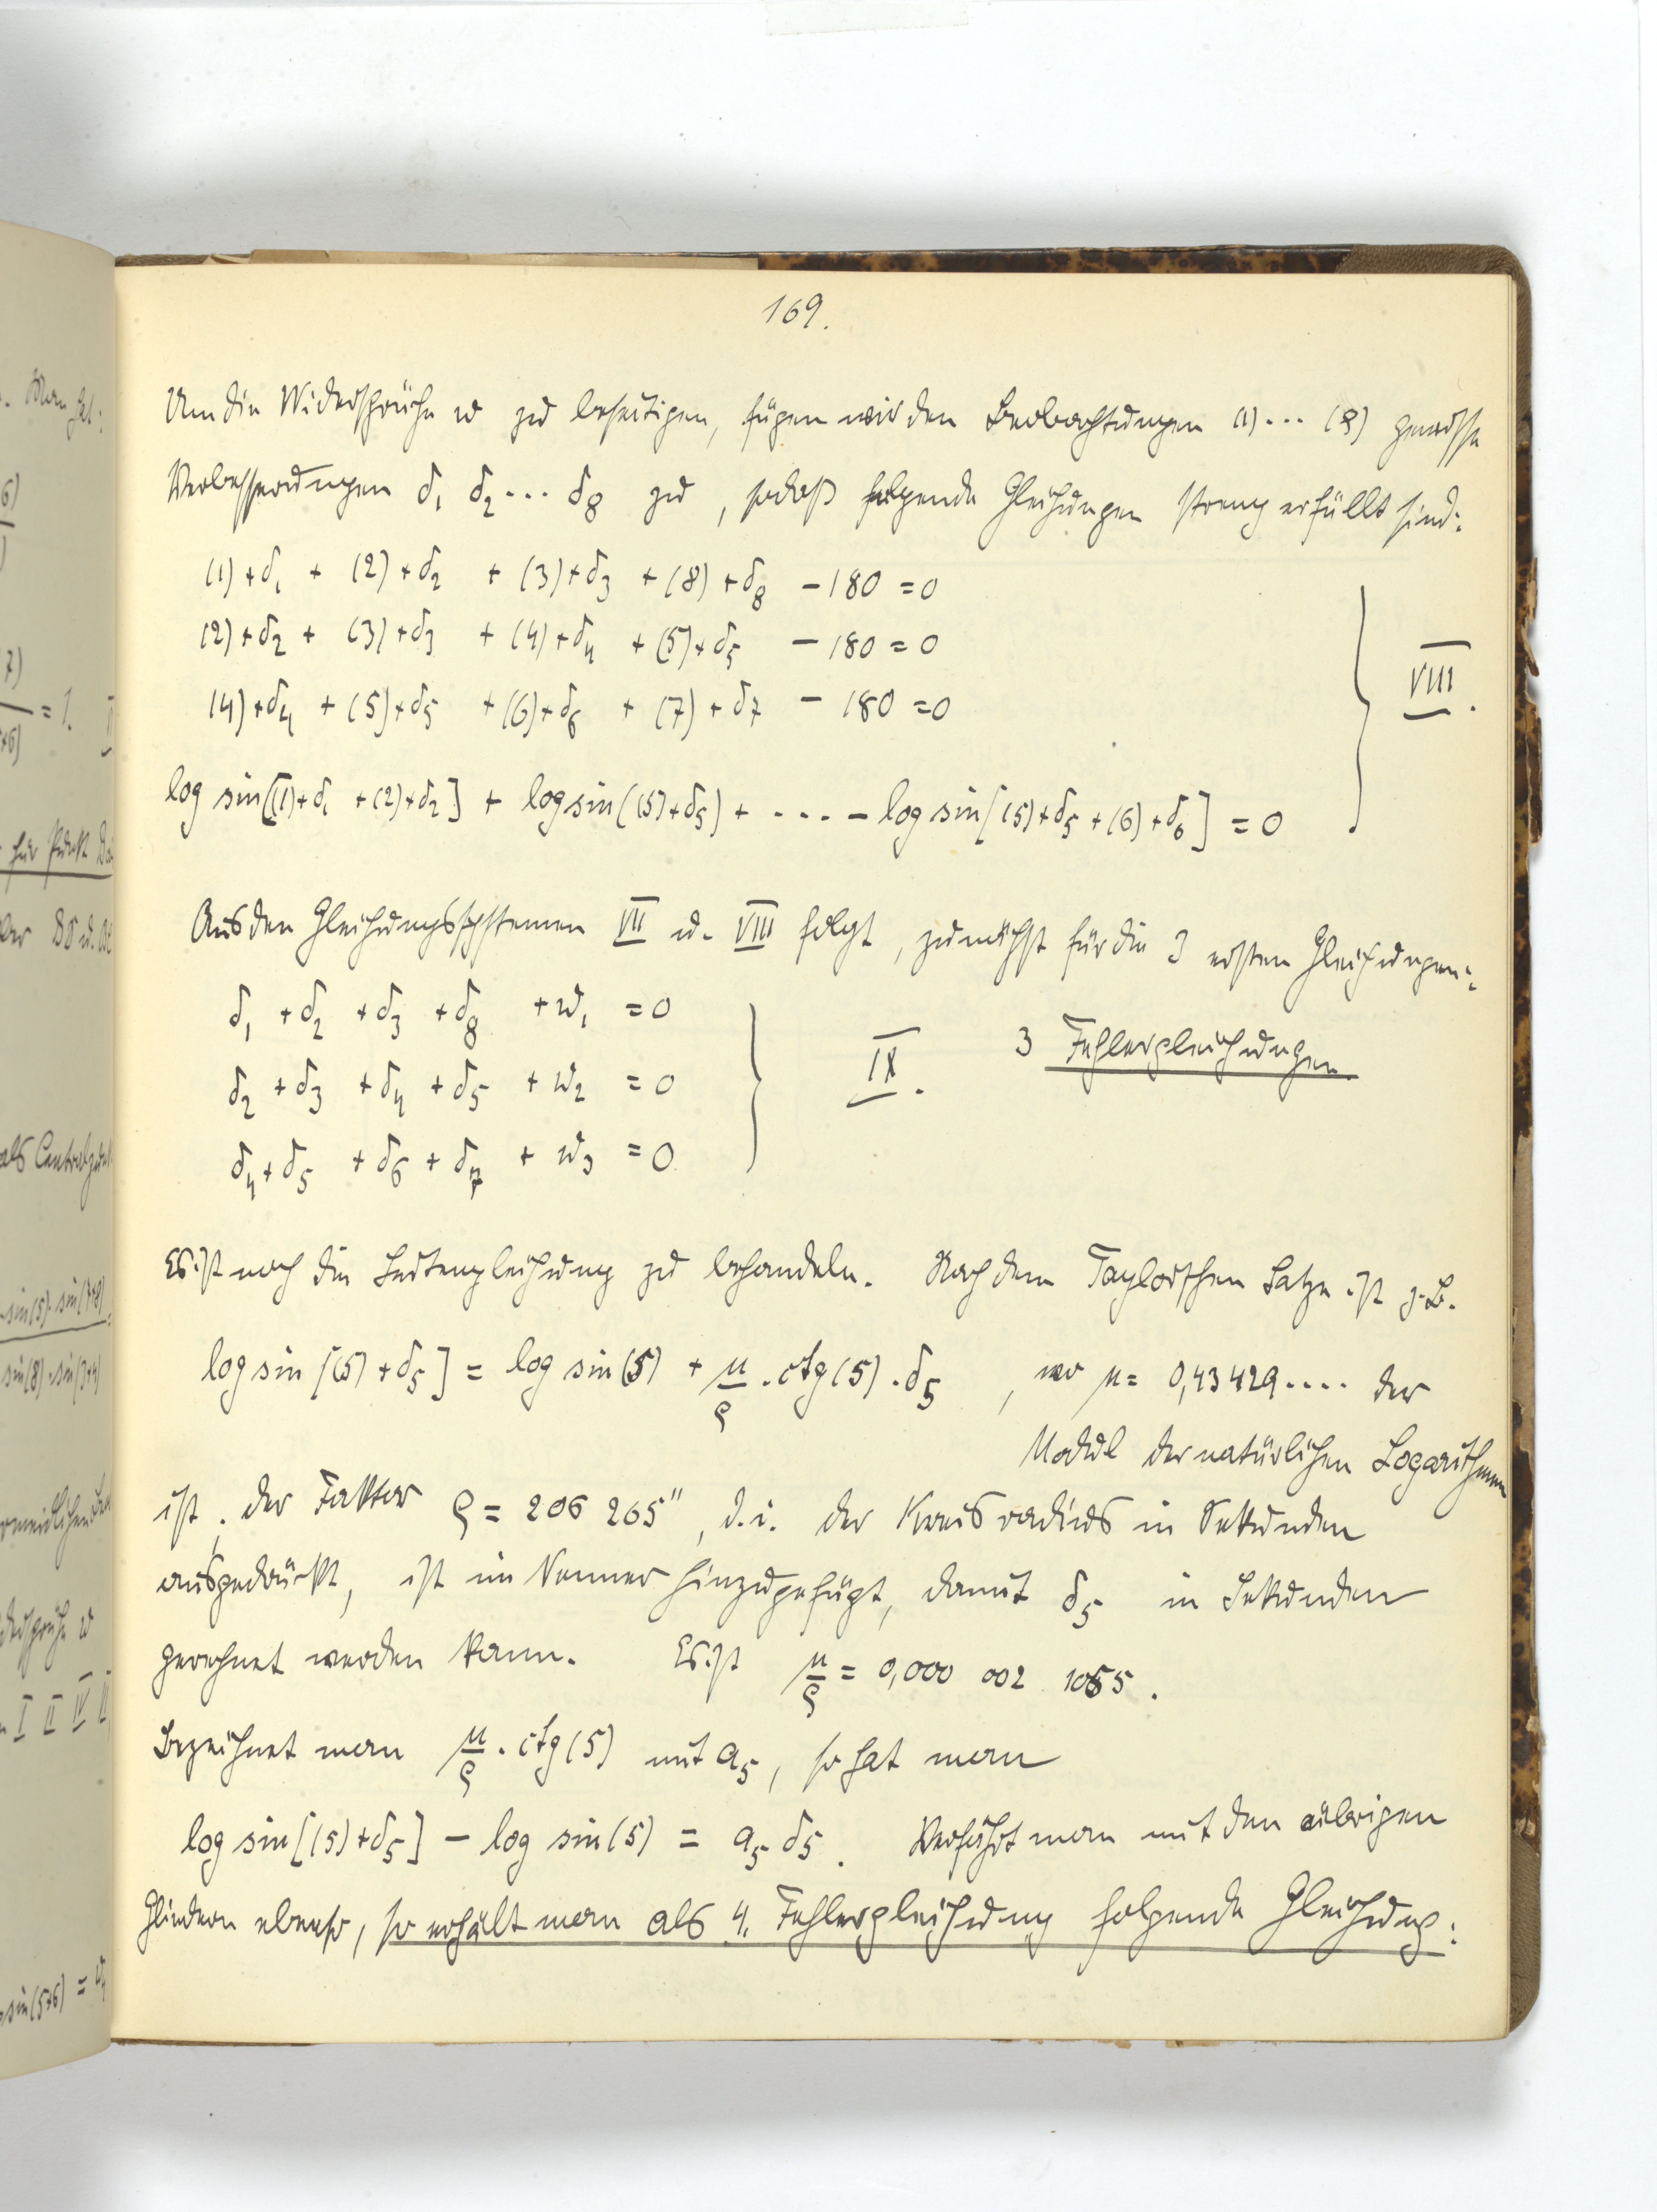 169.
Um die Widersprüche w zu beseitigen, fügen wir den Beobachtungen (1) ... (8) gewisse
Verbesserungen δ₁ δ₂ ... δ₈ zu, sodaß folgende Gleichungen streng erfüllt sind:
(1)+δ₁ + (2)+δ₂ + (3)+δ₃ + (8)+δ₈ − 180 = 0
(2)+δ₂ + (3)+δ₃ + (4)+δ₄ + (5)+δ₅ − 180 = 0
(4)+δ₄ + (5)+δ₅ + (6)+δ₆ + (7)+δ₇ − 180 = 0
VIII.
log sin[(1)+δ₁ + (2)+δ₂] + log sin((5)+δ₅) + .... − log sin[(5)+δ₅ + (6)+δ₆] = 0
Aus den Gleichungssystemen VII u. VIII folgt, zunächst für die 3 ersten Gleichungen:
δ₁ + δ₂ + δ₃ + δ₈ + w₁ = 0
δ₂ + δ₃ + δ₄ + δ₅ + w₂ = 0
δ₄ + δ₅ + δ₆ + δ₇ + w₃ = 0
IX. 3 Fehlergleichungen.
Es ist noch die Seitengleichung zu behandeln. Nach dem Taylorschen Satze ist z.B.
log sin[(5)+δ₅] = log sin(5) + μ/ϱ · ctg(5) · δ₅, wo μ = 0,43429.... der
Modul der natürlichen Logarithmen
ist; der Faktor ϱ = 206 265″, d.i. der Kreisradius in Sekunden
ausgedrückt, ist im Nenner hinzugefügt, damit δ₅ in Sekunden
gerechnet werden kann. Es ist μ/ϱ = 0,000 002 1055.
Bezeichnet man μ/ϱ · ctg(5) mit a₅, so hat man
log sin[(5)+δ₅] − log sin(5) = a₅ δ₅. Verfährt man mit den übrigen
Gliedern ebenso, so erhält man als 4. Fehlergleichung folgende Gleichung: